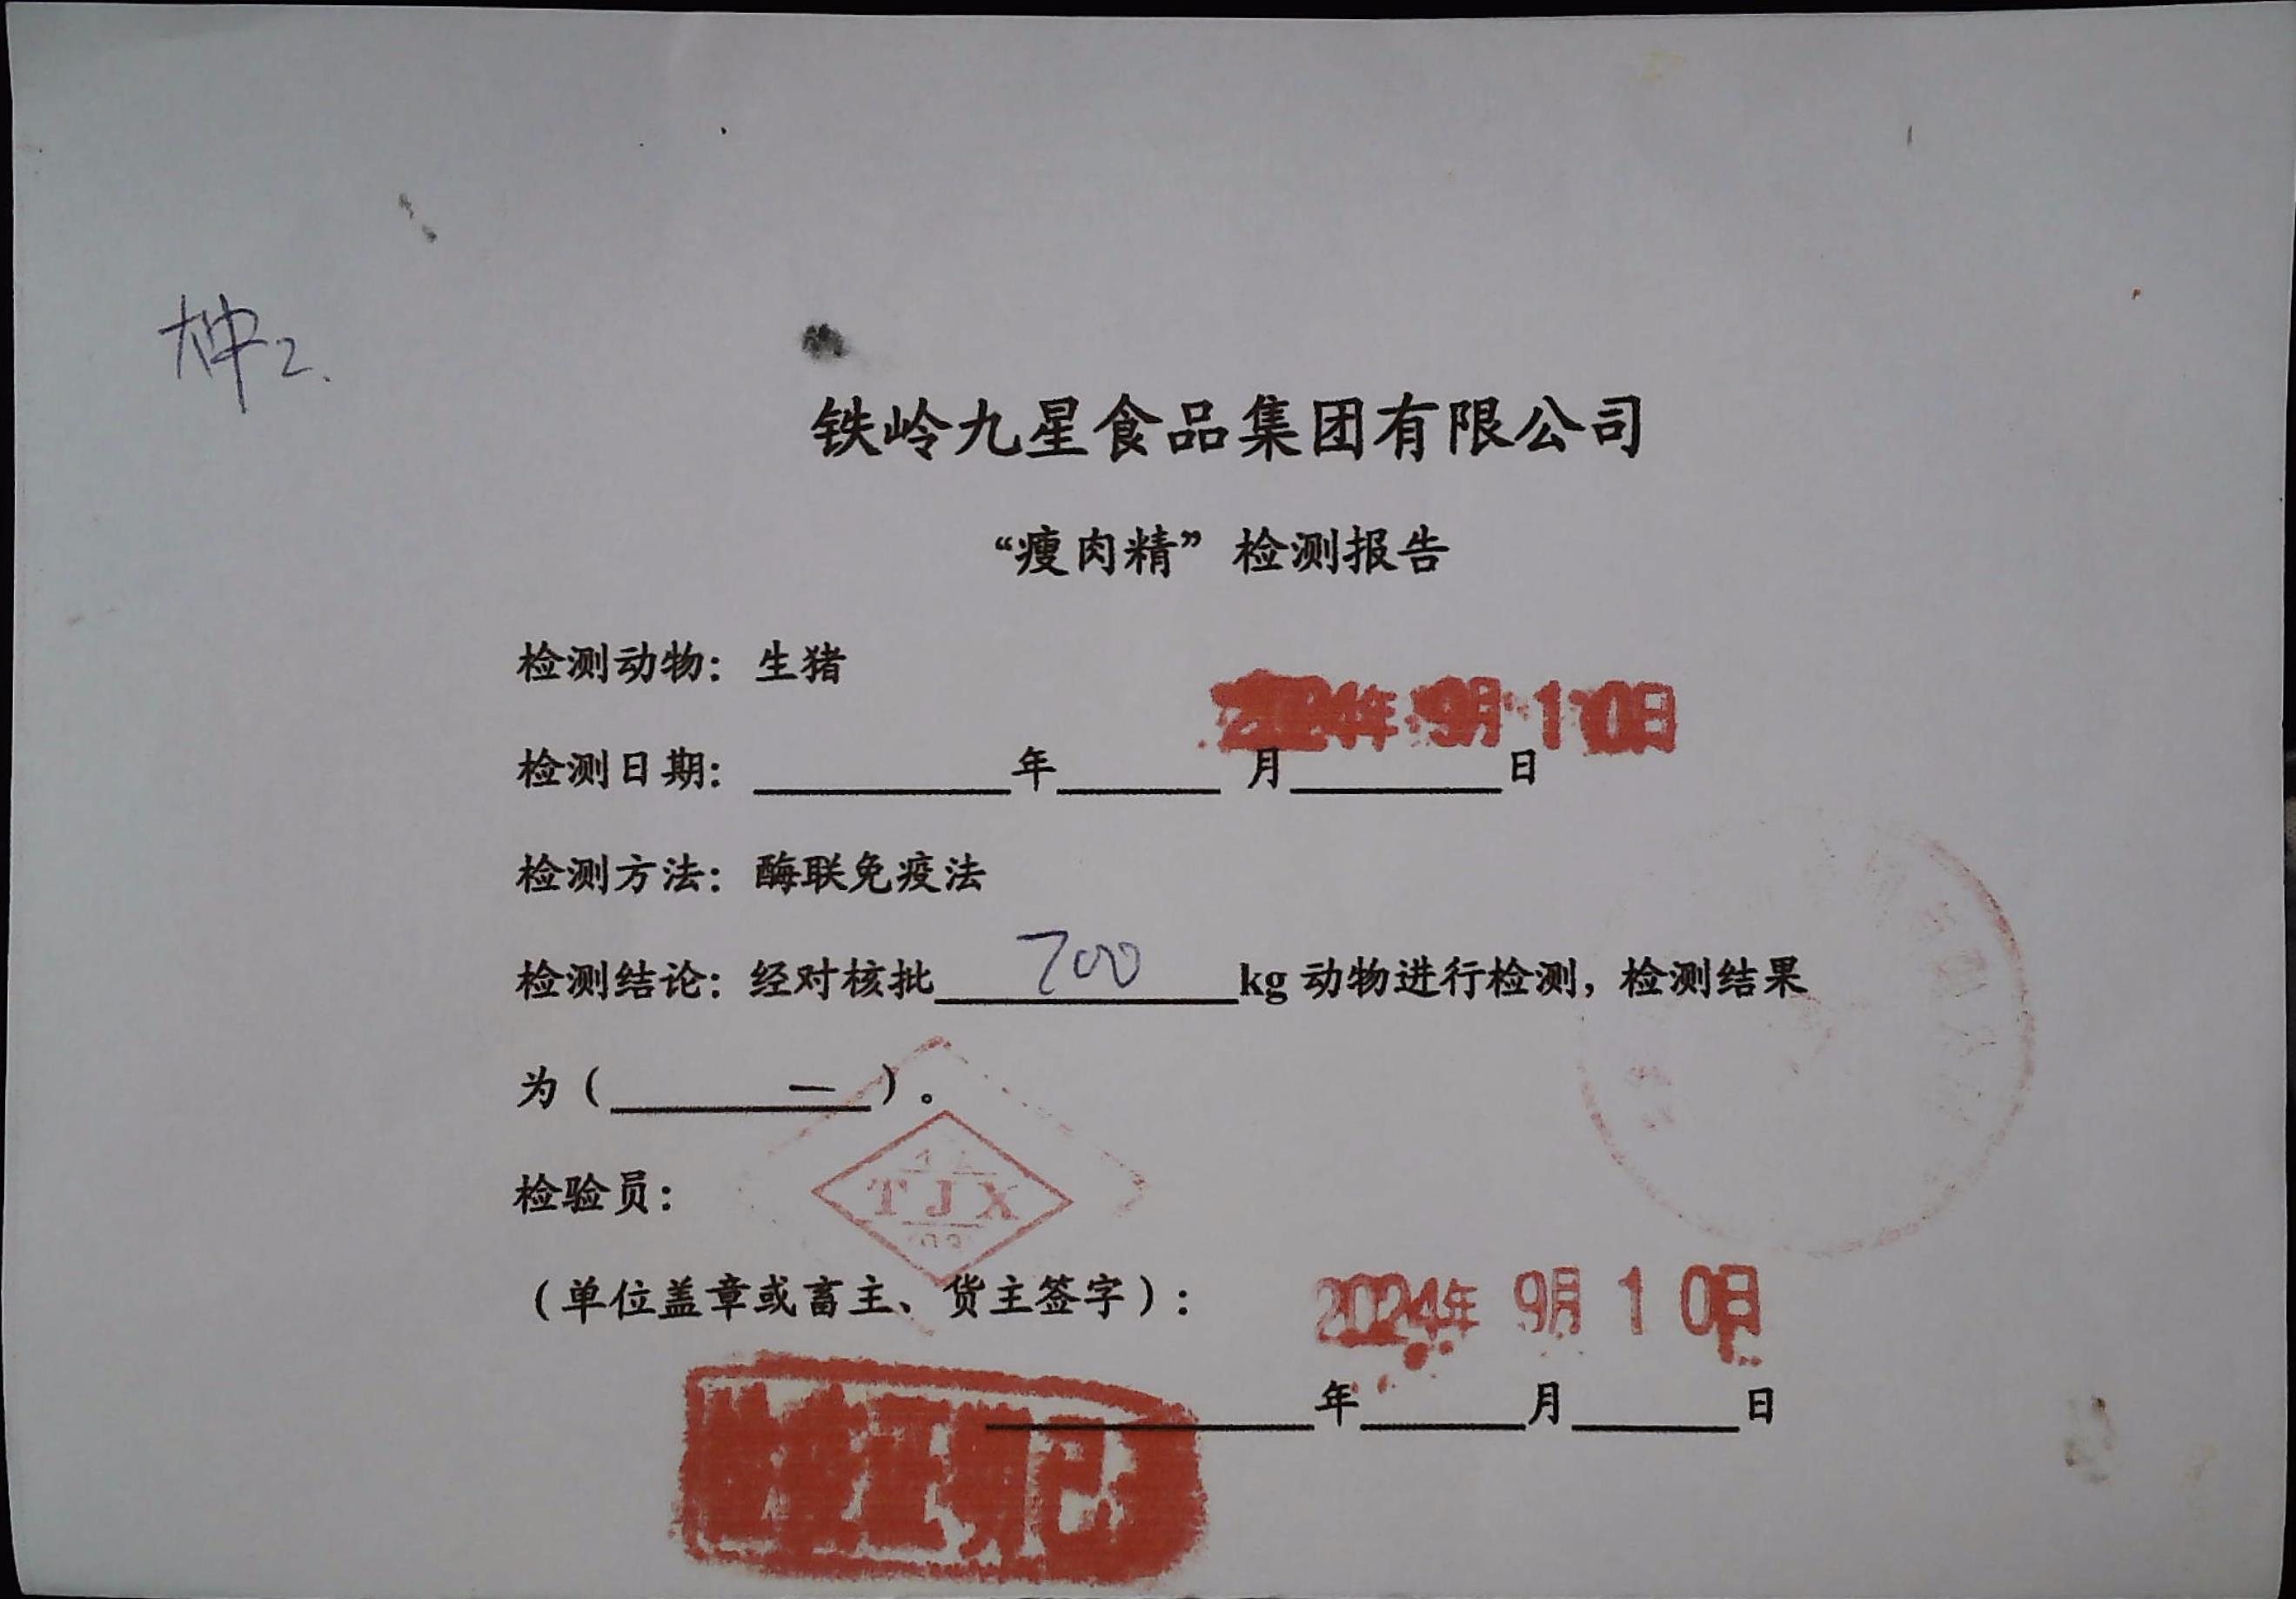 铁岭九星食品集团有限公司
“瘦肉精”检测报告
检测动物：生猪
2024年 9月 10日
检测日期：______年______月______日
检测方法：酶联免疫法
检测结论：经对核批 700 kg动物进行检测，检测结果
为（ — ）。
TJX
检验员：
（单位盖章或畜主、货主签字）：
2024年 9月 10日
______年______月______日